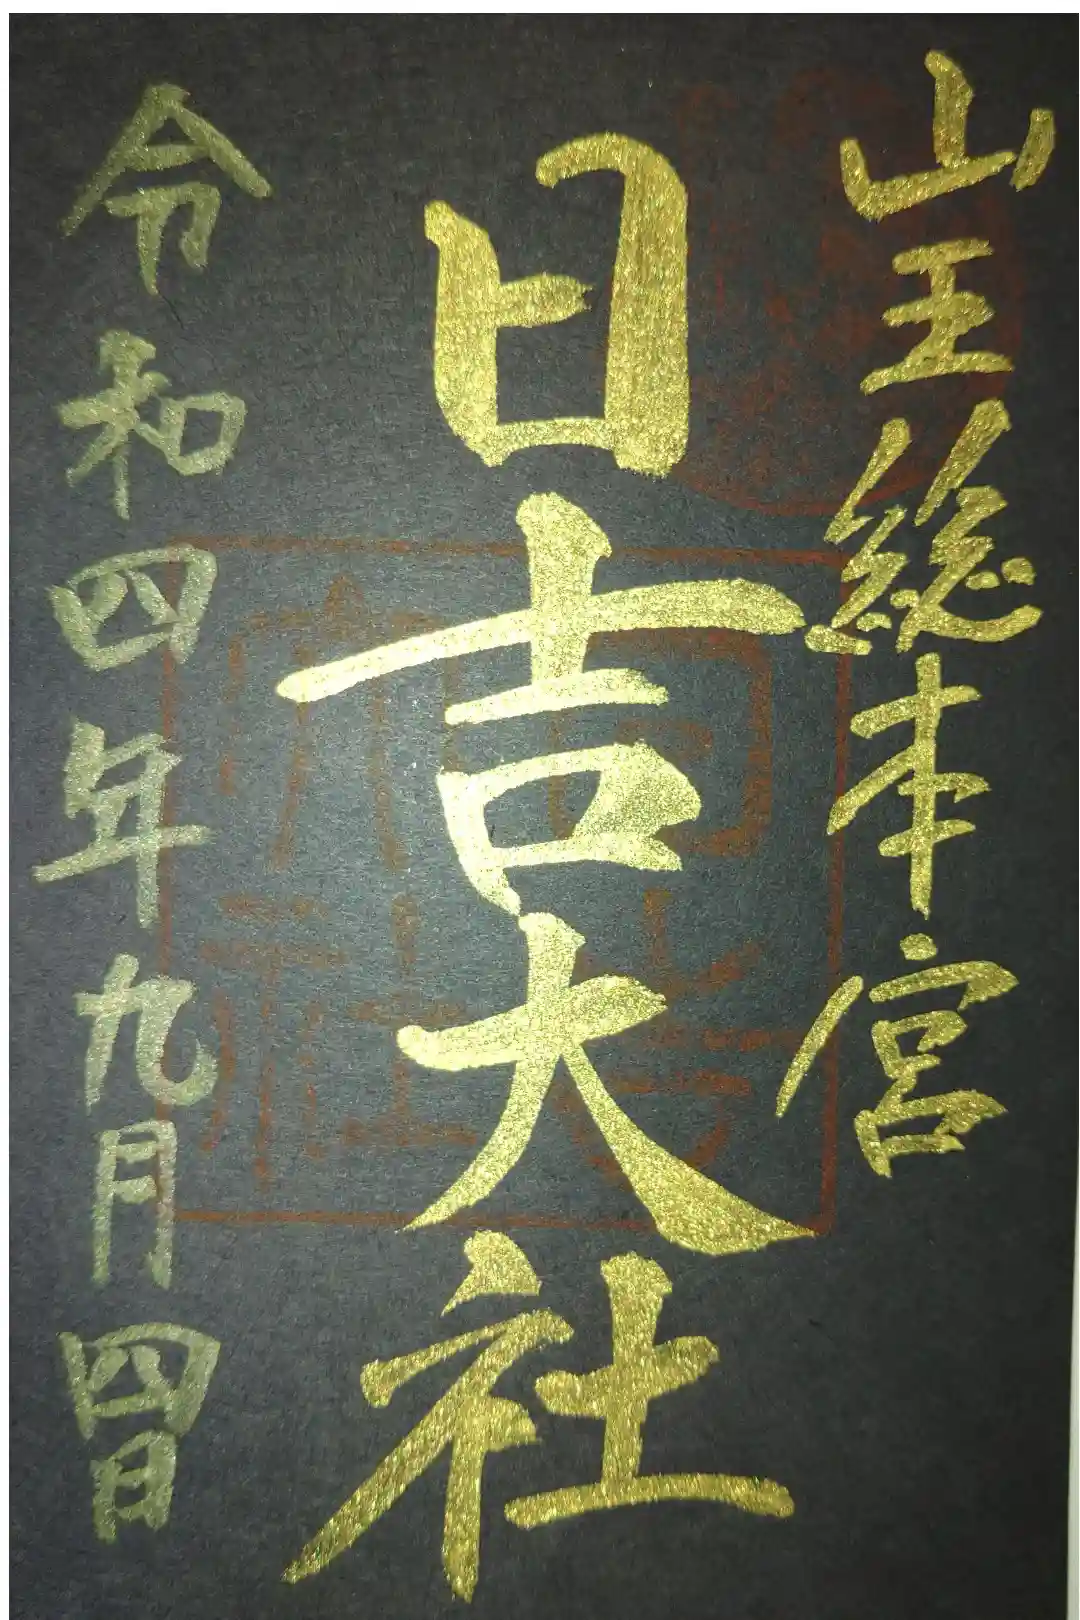 山王総本宮
日吉大社
令和四年九月四日
日吉大社